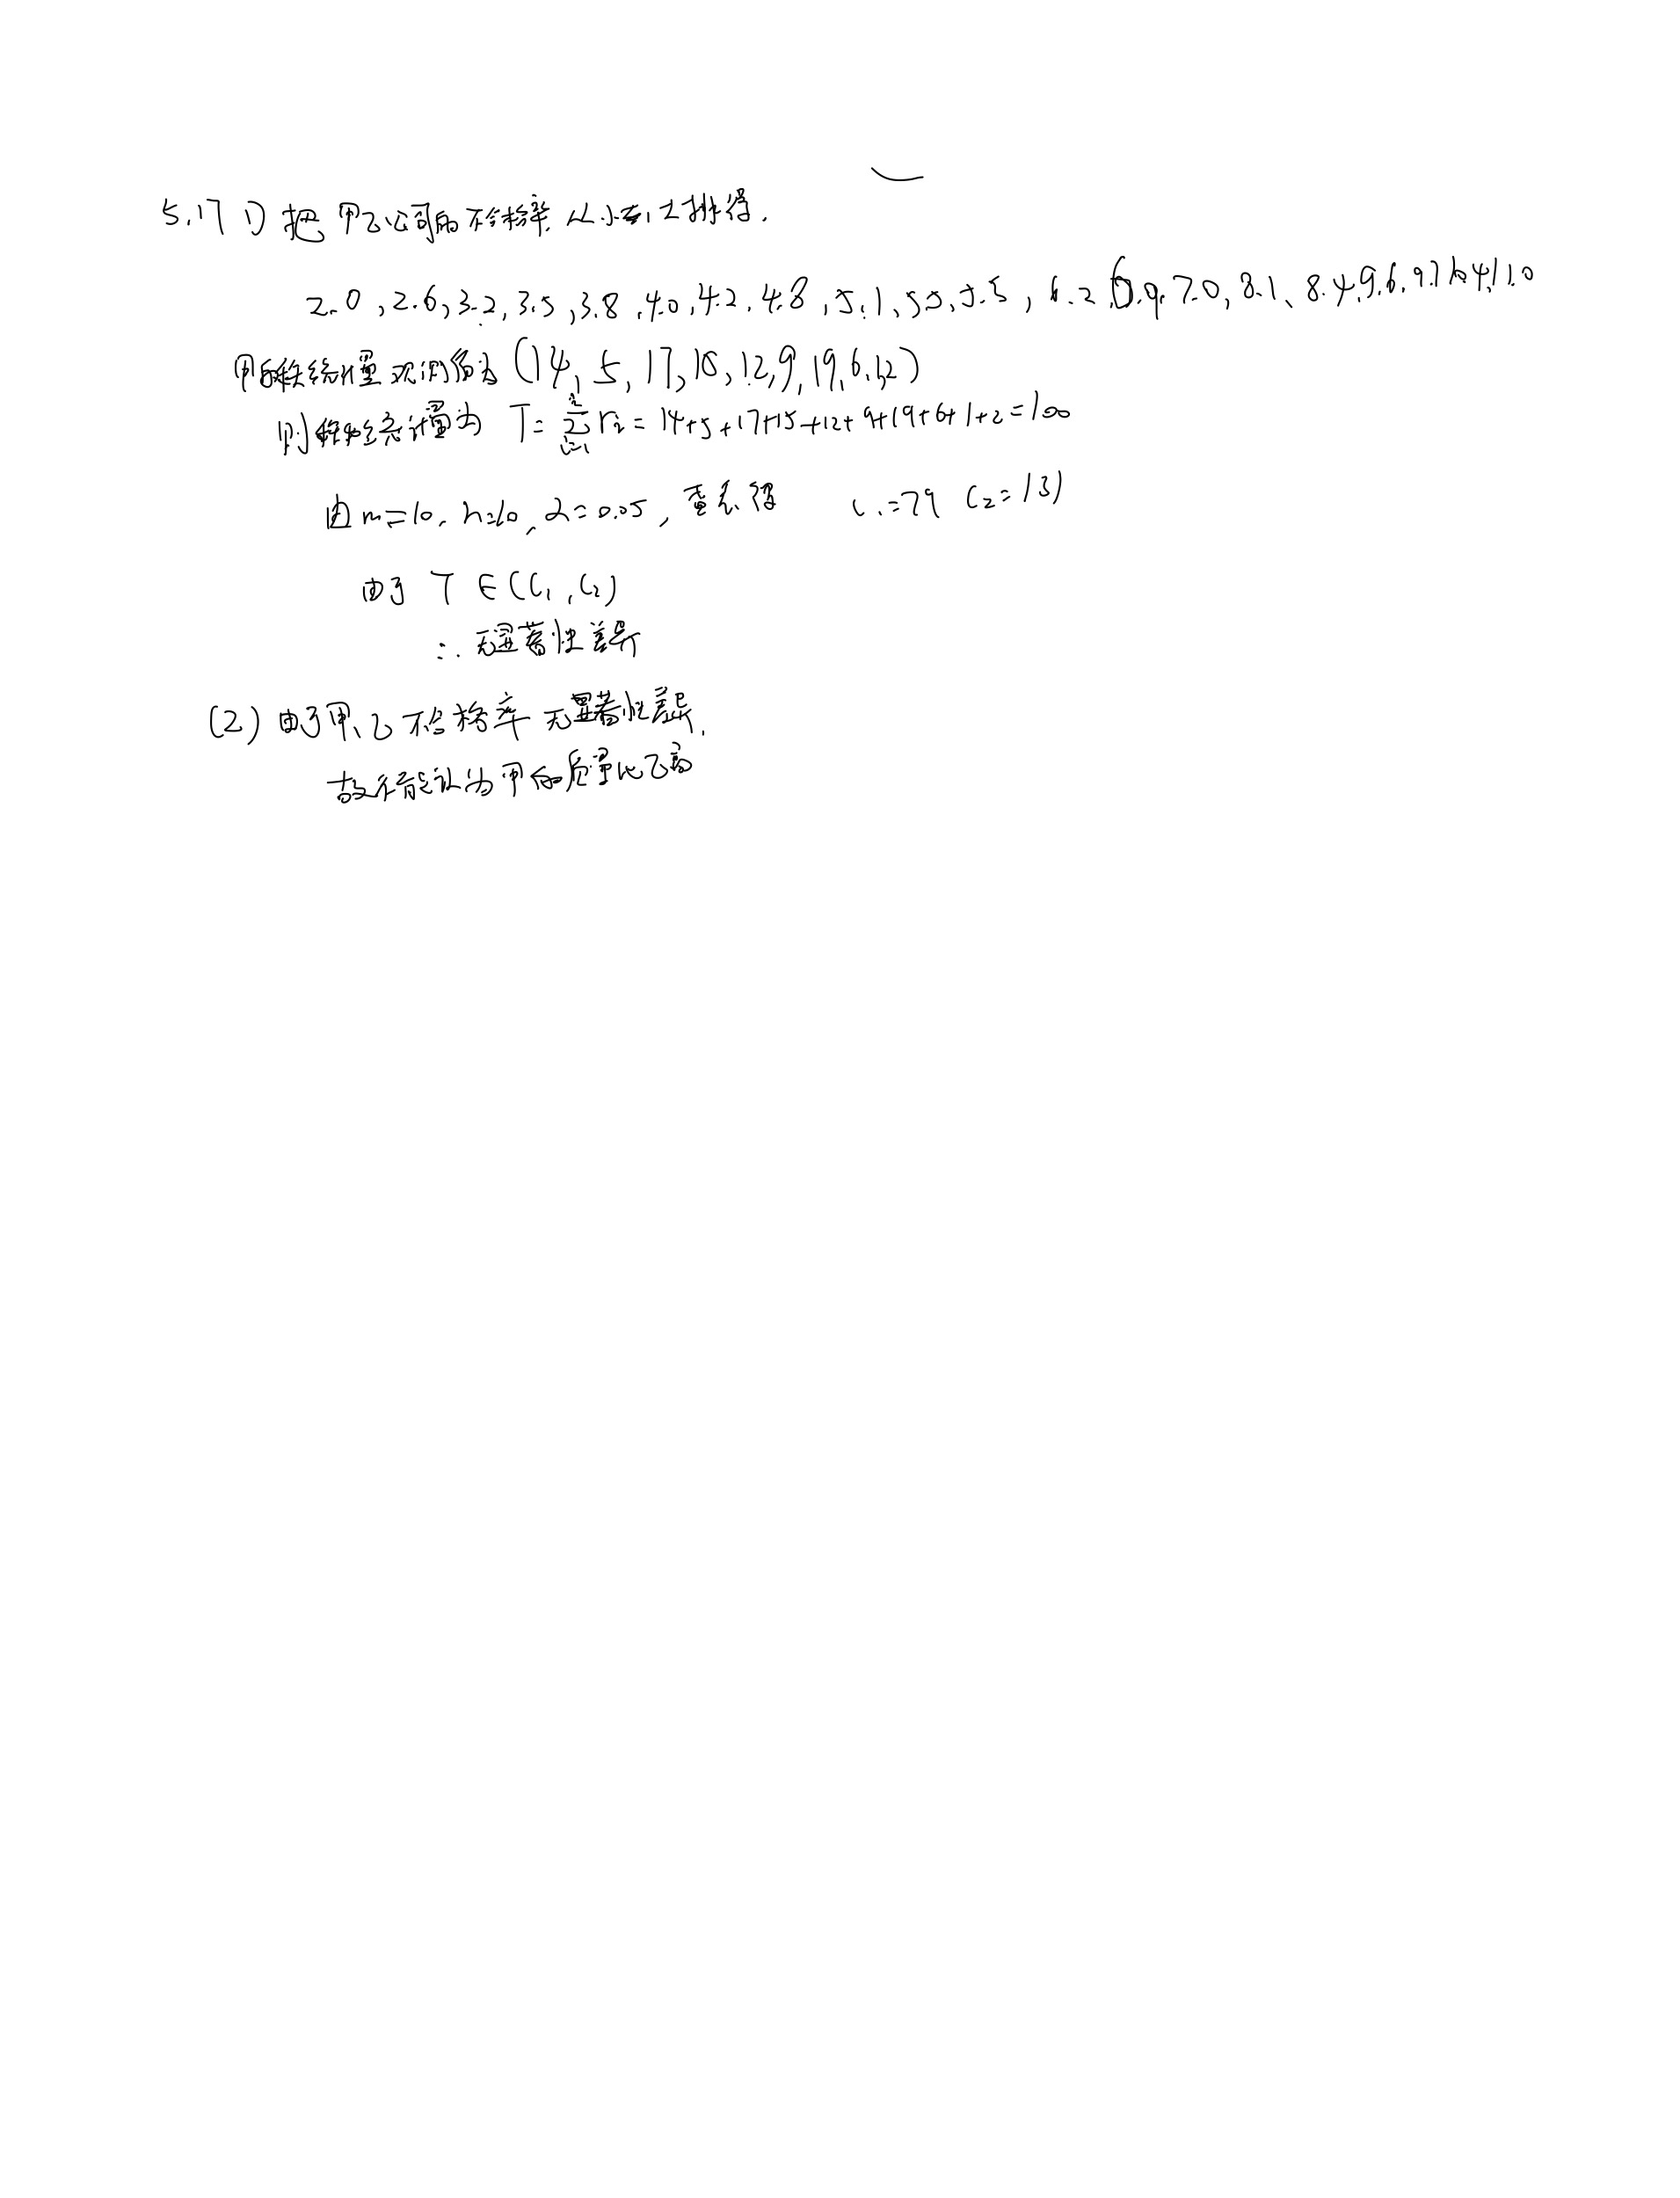 5.17 1) 把甲乙公司的不合格率从小到大排得.
2.0, 2.6, 3.2, 3.5, 3.8, 4.0, 4.2, 4.8, 5.1, 5.5, 5.5, 6.2, 6.9, 7.0, 8.1, 8.4, 9.6, 9.7, 10.4, 11.0
甲的秩统计量观测值为 (14, 5, 17, 15, 12, 9, 19, 6, 1, 2)
则秩和统计量为 T = Σ ri = 14+5+17+15+12+9+19+6+1+2=100
由 m=10, n=10, α=0.05, 查表得 C1=79 C2=131
由于 T ∈ (C1, C2)
∴ 无显著性差异
(2) 由于甲、乙不合格率无显著性差异.
故不能认为甲的质量比乙高